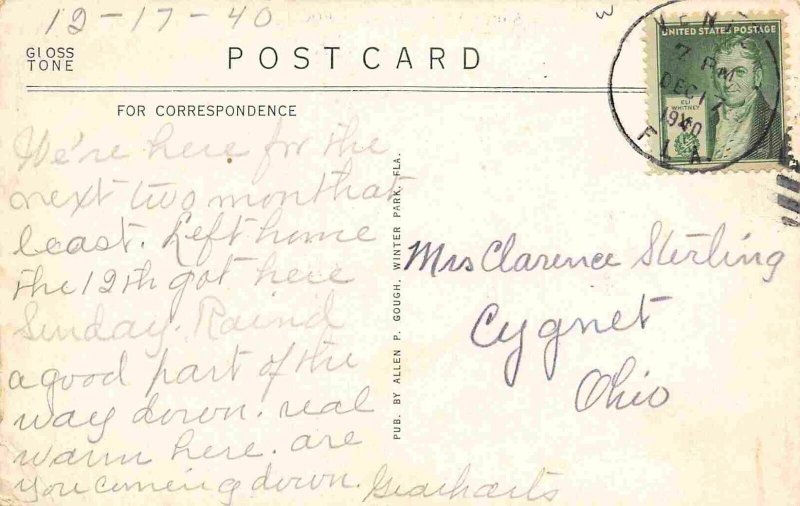 12-17-40
GLOSS
TONE
POST CARD
FOR CORRESPONDENCE
UNITED STATES POSTAGE
ELI
WHITNEY
7 PM
DEC 17
1940
FLA.
We're here for the
next two month at
least. Left home
the 12th got here
Sunday. Raind
a good part of the
way down. real
warm here. are
you comeing down. Gearharts
PUB. BY ALLEN P. GOUGH, WINTER PARK, FLA.
Mrs Clarence Sterling
Cygnet
Ohio